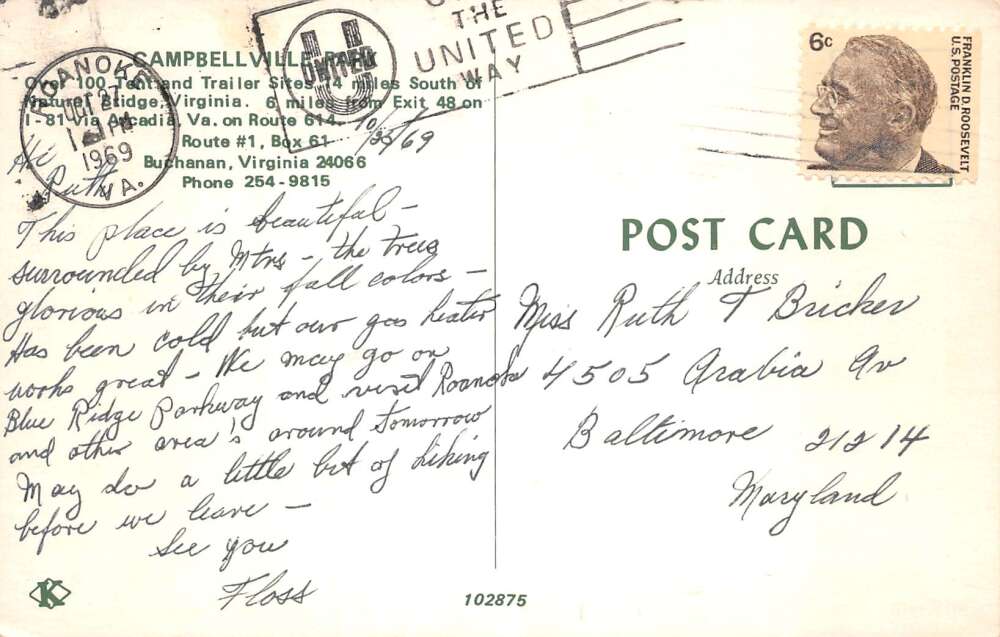 THE
UNITED
WAY
UNITED
ROANOKE
OCT 27
PM
1969
VA.
CAMPBELLVILLE PARK
Over 100 Tent and Trailer Sites 14 miles South of
Natural Bridge, Virginia. 6 miles from Exit 48 on
I-81 via Arcadia, Va. on Route 614.
Route #1, Box 61
Buchanan, Virginia 24066
Phone 254-9815
6c
FRANKLIN D. ROOSEVELT
U.S. POSTAGE
10/25/69
Hi
Ruth,
This place is beautiful -
surrounded by Mtns - the trees
glorious in their fall colors -
Has been cold but our gas heater
works great - We may go on
Blue Ridge Parkway and visit Roanoke
and other area's around tomorrow
May do a little bit of hiking
before we leave -
See you
Floss
POST CARD
Address
Miss Ruth T Bricker
4505 Arabia Av
Baltimore 21214
Maryland
K
102875